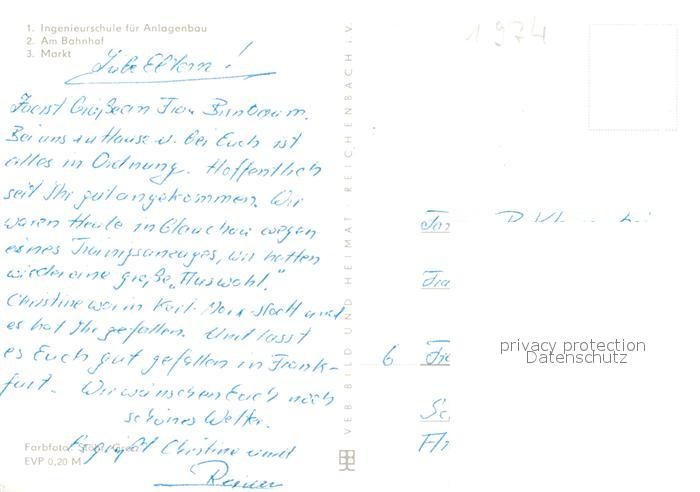 1. Ingenieurschule für Anlagenbau
2. Am Bahnhof
3. Markt
1974
Liebe Eltern!
Zuerst Grüße an Frau Birnbaum.
Bei uns zu Hause u. bei Euch ist
alles in Ordnung. Hoffentlich
seid Ihr gut angekommen. Wir
waren Heute in Glauchau wegen
eines Trainigsanzuges, wir hatten
wieder eine große „Auswahl."
Christine war in Karl-Marx-Stadt und
es hat Ihr gefallen. Und lasst
es Euch gut gefallen in Frank-
furt. Wir wünschen Euch noch
schönes Wetter.
Es grüßt Christine und
Rainer
Farbfoto:
EVP 0,20 M
VEB BILD UND HEIMAT · REICHENBACH i. V.
6
privacy protection
Datenschutz